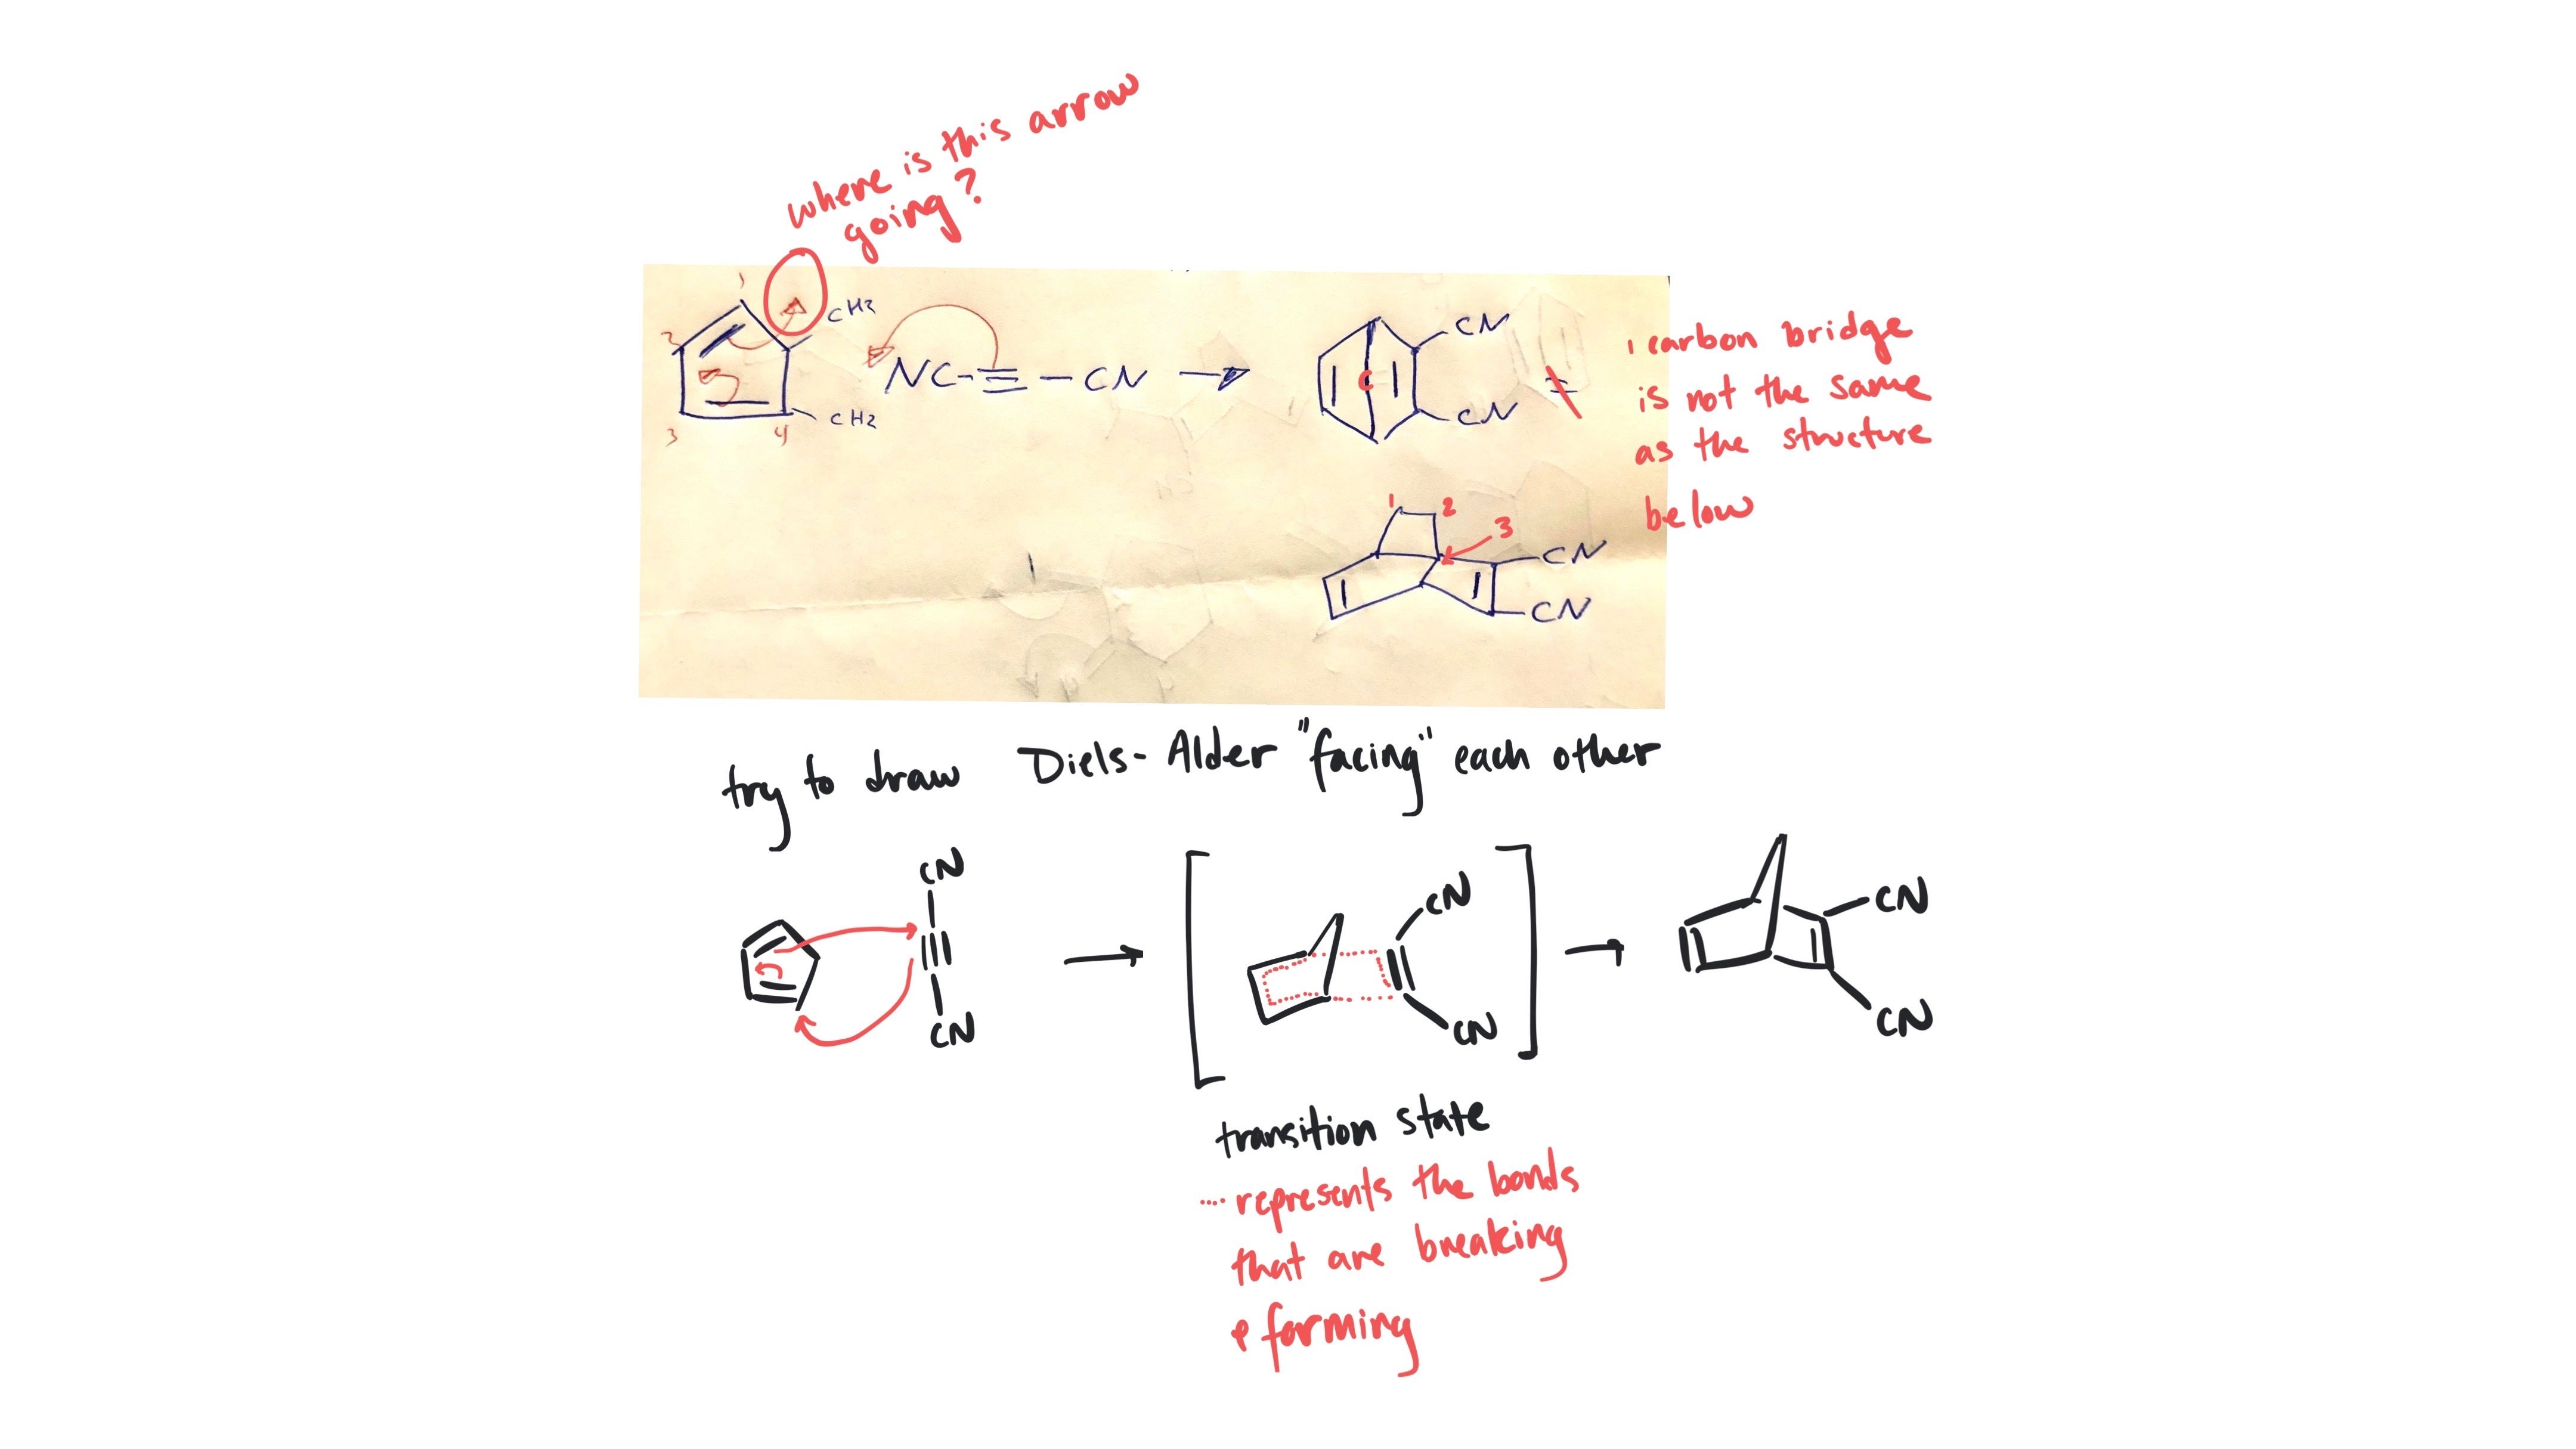 where is this arrow
going?
1
2
3
4
CH2
CH2
NC-≡-CN
CN
CN
C
1 carbon bridge
is not the same
as the structure
below
1
2
3
CN
CN
try to draw Diels-Alder "facing" each other
CN
CN
CN
CN
CN
CN
transition state
.... represents the bonds
that are breaking
& forming